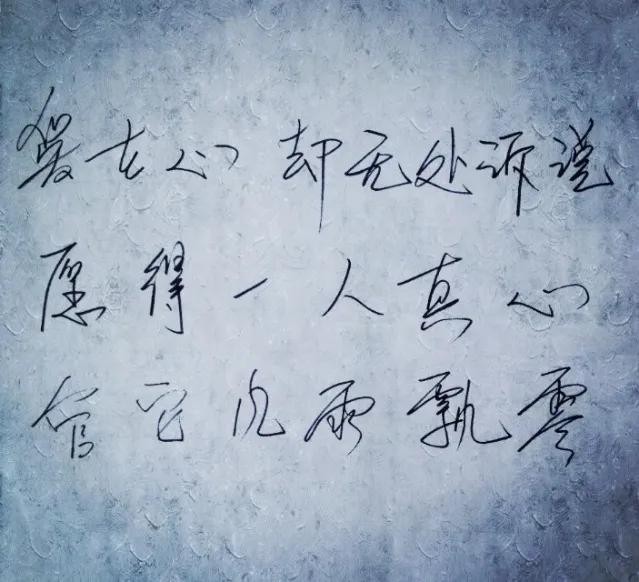 爱在心却无处诉说
愿得一人真心
管它风雨飘零